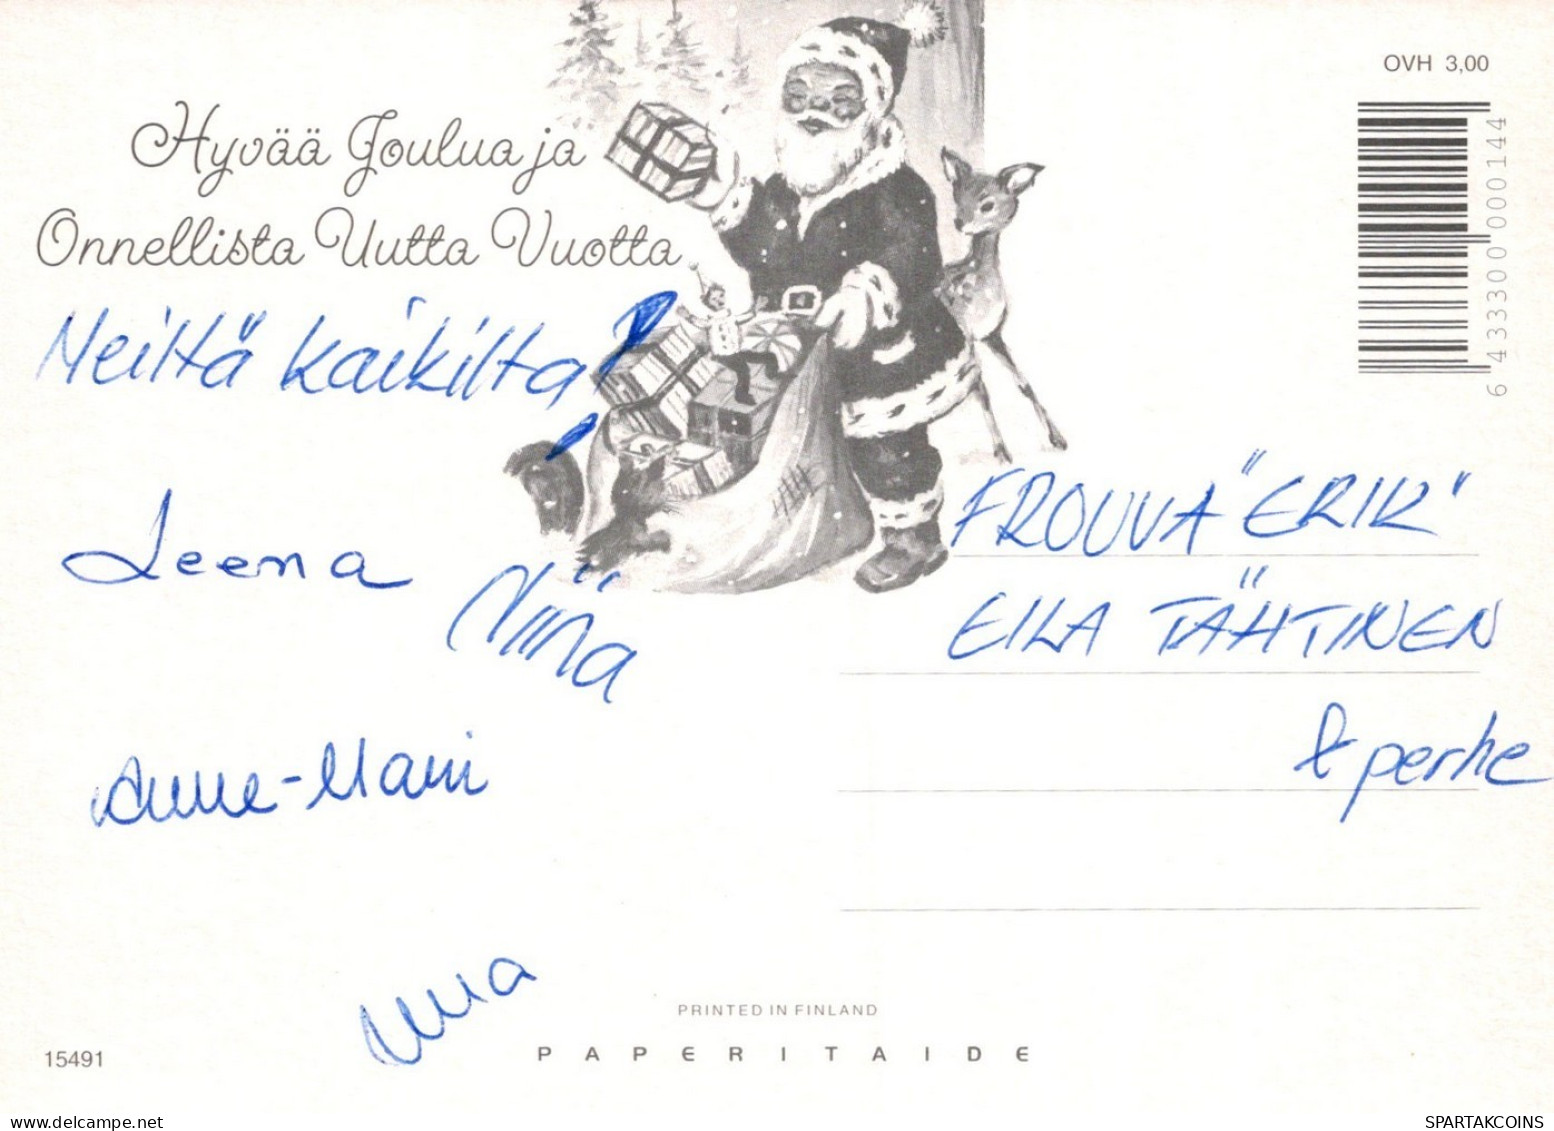 OVH 3,00
Hyvää Joulua ja
Onnellista Uutta Vuotta
Meiltä kaikilta!
6 433300 000144
FROUVA "ERIK"
EILA TÄHTINEN
& perhe
Leena
Niina
Anne-Mari
PRINTED IN FINLAND
PAPERITAIDE
15491
www.delcampe.net
SPARTAKCOINS